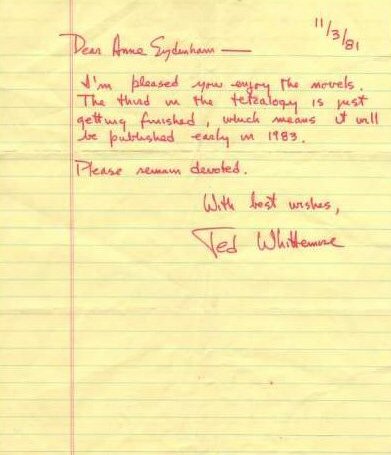 11/3/81
Dear Anne Sydenham —
I'm pleased you enjoy the novels.
The third in the tetralogy is just
getting finished, which means it will
be published early in 1983.
Please remain devoted.
With best wishes,
Ted Whittemore